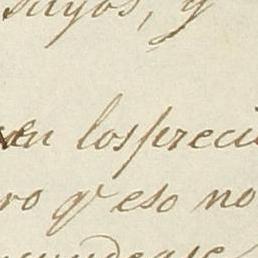 suyos, y
en los preci
ro qᵉ eso no